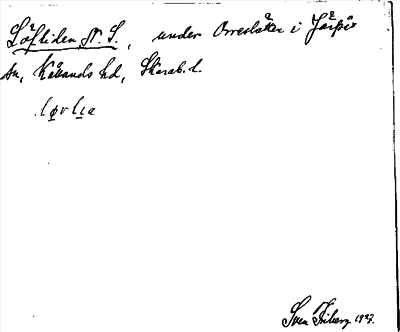 Löfliden N. S., under Orreslåker i Järpås
sn, Kållands hd, Skarab. l.
løvlıa
Sven Friberg 1927.